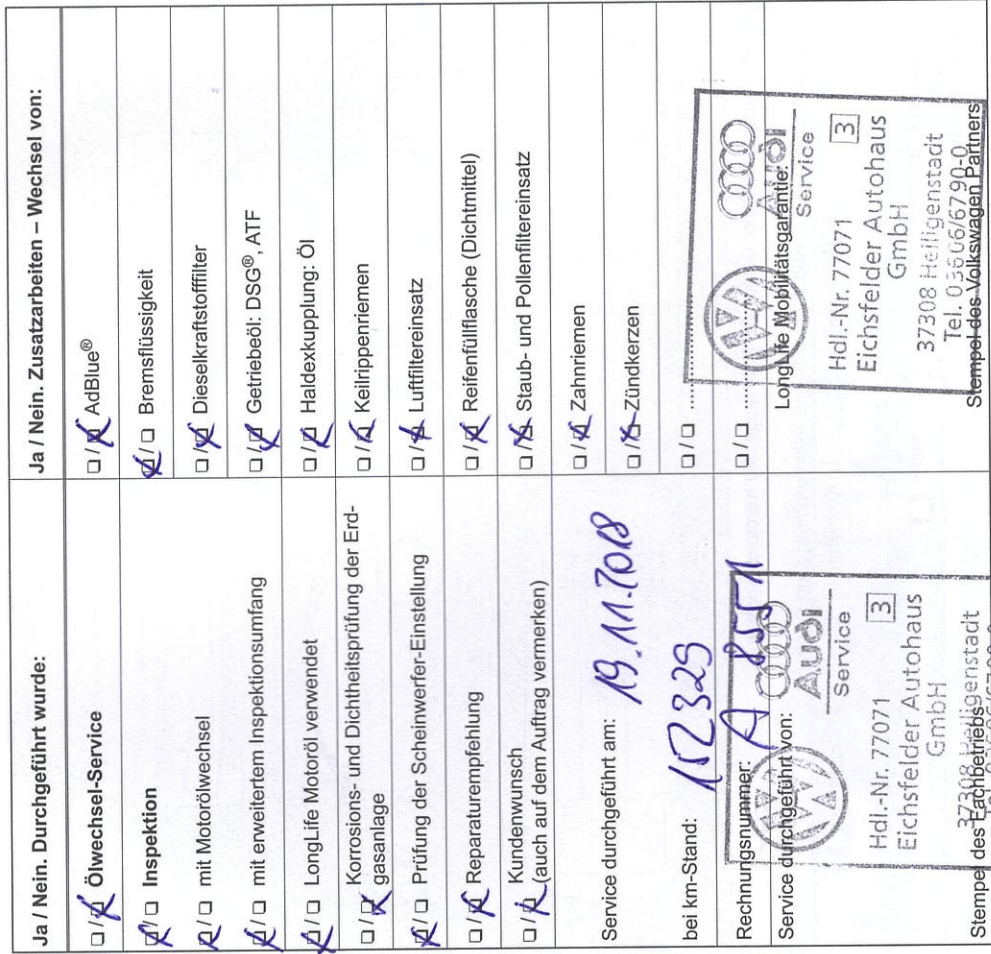 Ja / Nein. Durchgeführt wurde:
□/☒ Ölwechsel-Service
☒/□ Inspektion
☒/□ mit Motorölwechsel
☒/□ mit erweitertem Inspektionsumfang
☒/□ LongLife Motoröl verwendet
□/☒ Korrosions- und Dichtheitsprüfung der Erd-
gasanlage
☒/□ Prüfung der Scheinwerfer-Einstellung
□/☒ Reparaturempfehlung
□/☒ Kundenwunsch
(auch auf dem Auftrag vermerken)
Service durchgeführt am: 19.11.2018
bei km-Stand: 152329
Rechnungsnummer: A 85511
Service durchgeführt von:
Audi
Service
Hdl.-Nr. 77071 3
Eichsfelder Autohaus
GmbH
37308 Heiligenstadt
Stempel des Fachbetriebs
Ja / Nein. Zusatzarbeiten – Wechsel von:
□/☒ AdBlue®
☒/□ Bremsflüssigkeit
□/☒ Dieselkraftstofffilter
□/☒ Getriebeöl: DSG®, ATF
□/☒ Haldexkupplung: Öl
□/☒ Keilrippenriemen
□/☒ Luftfiltereinsatz
□/☒ Reifenfüllflasche (Dichtmittel)
□/☒ Staub- und Pollenfiltereinsatz
□/☒ Zahnriemen
□/☒ Zündkerzen
□/□
□/□
LongLife Mobilitätsgarantie:
Audi
Service
Hdl.-Nr. 77071 3
Eichsfelder Autohaus
GmbH
37308 Heiligenstadt
Tel. 03606/6790-0
Stempel des Volkswagen Partners